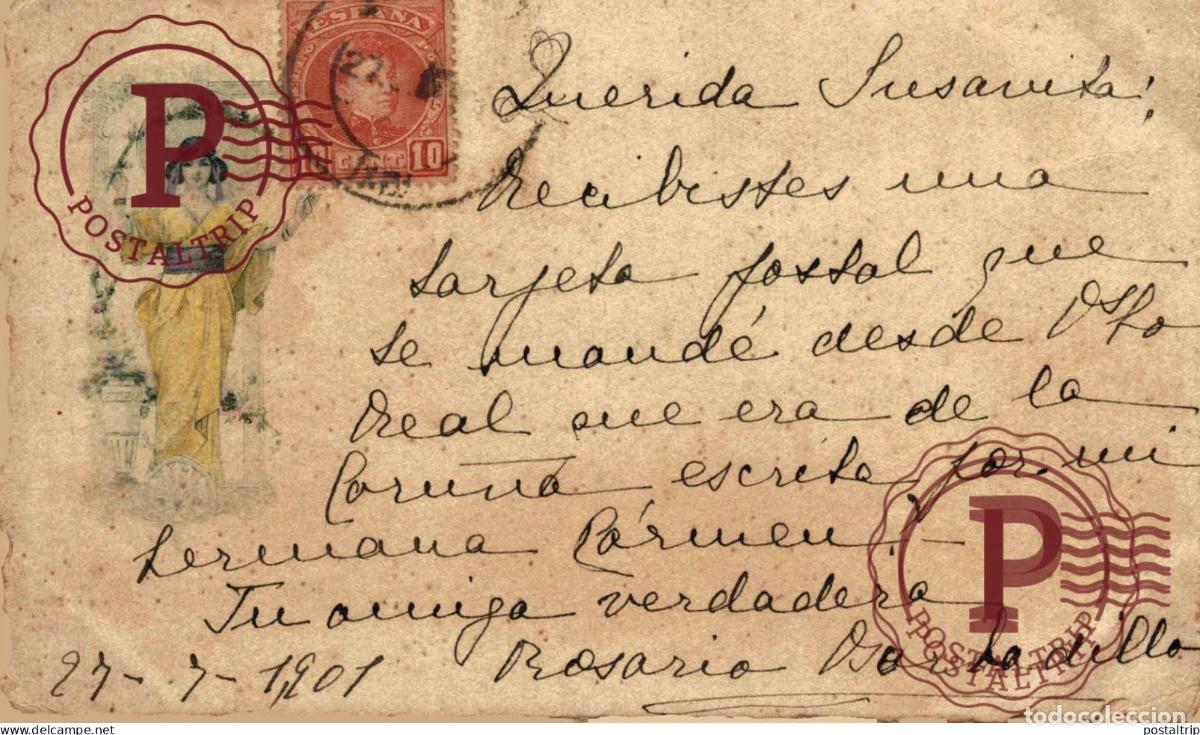 ESPAÑA
27
10
Querida Susanita:
Recibistes una
tarjeta postal que
te mandé desde Pto
Real que era de la
Coruña escrita por mi
hermana Cármen.—
Tu amiga verdadera
Rosario
27-7-1901
P
POSTALTRIP
P
POSTALTRIP
todocoleccion
www.delcampe.net
postaltrip